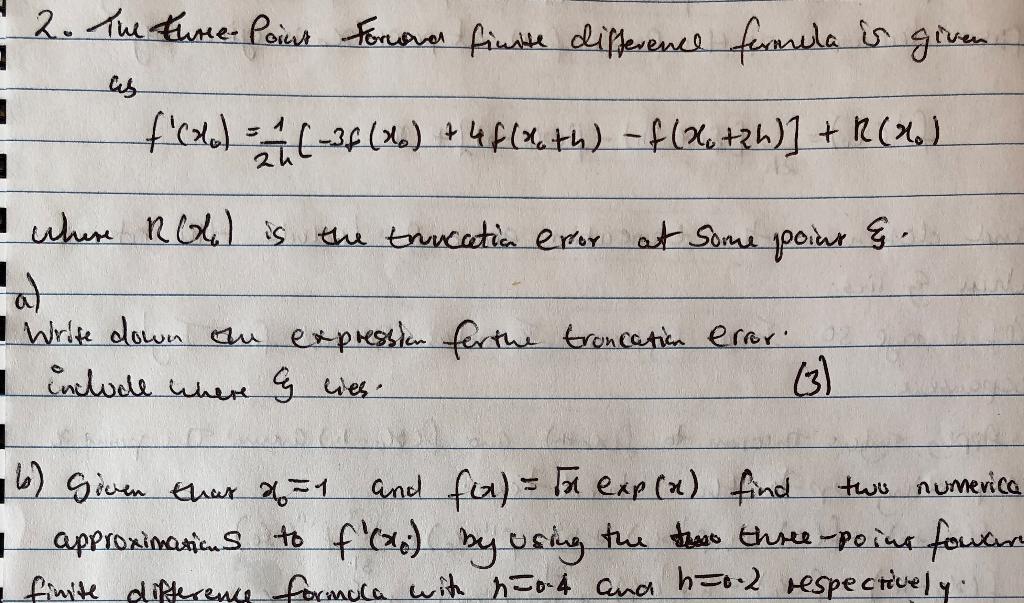 2. The three-Point Forward finite difference formula is given
as
f'(x₀) = 1/2h [-3f(x₀) + 4f(x₀+h) - f(x₀+2h)] + R(x₀)
where R(x₀) is the truncation error at some point ξ.
a)
Write down the expression for the troncation error.
include where ξ lies. (3)
b) Given that x₀=1 and f(x) = √x exp(x) find two numerica
approximations to f'(x₀) by using the three-point forwar
finite difference formula with h=0.4 and h=0.2 respectively.